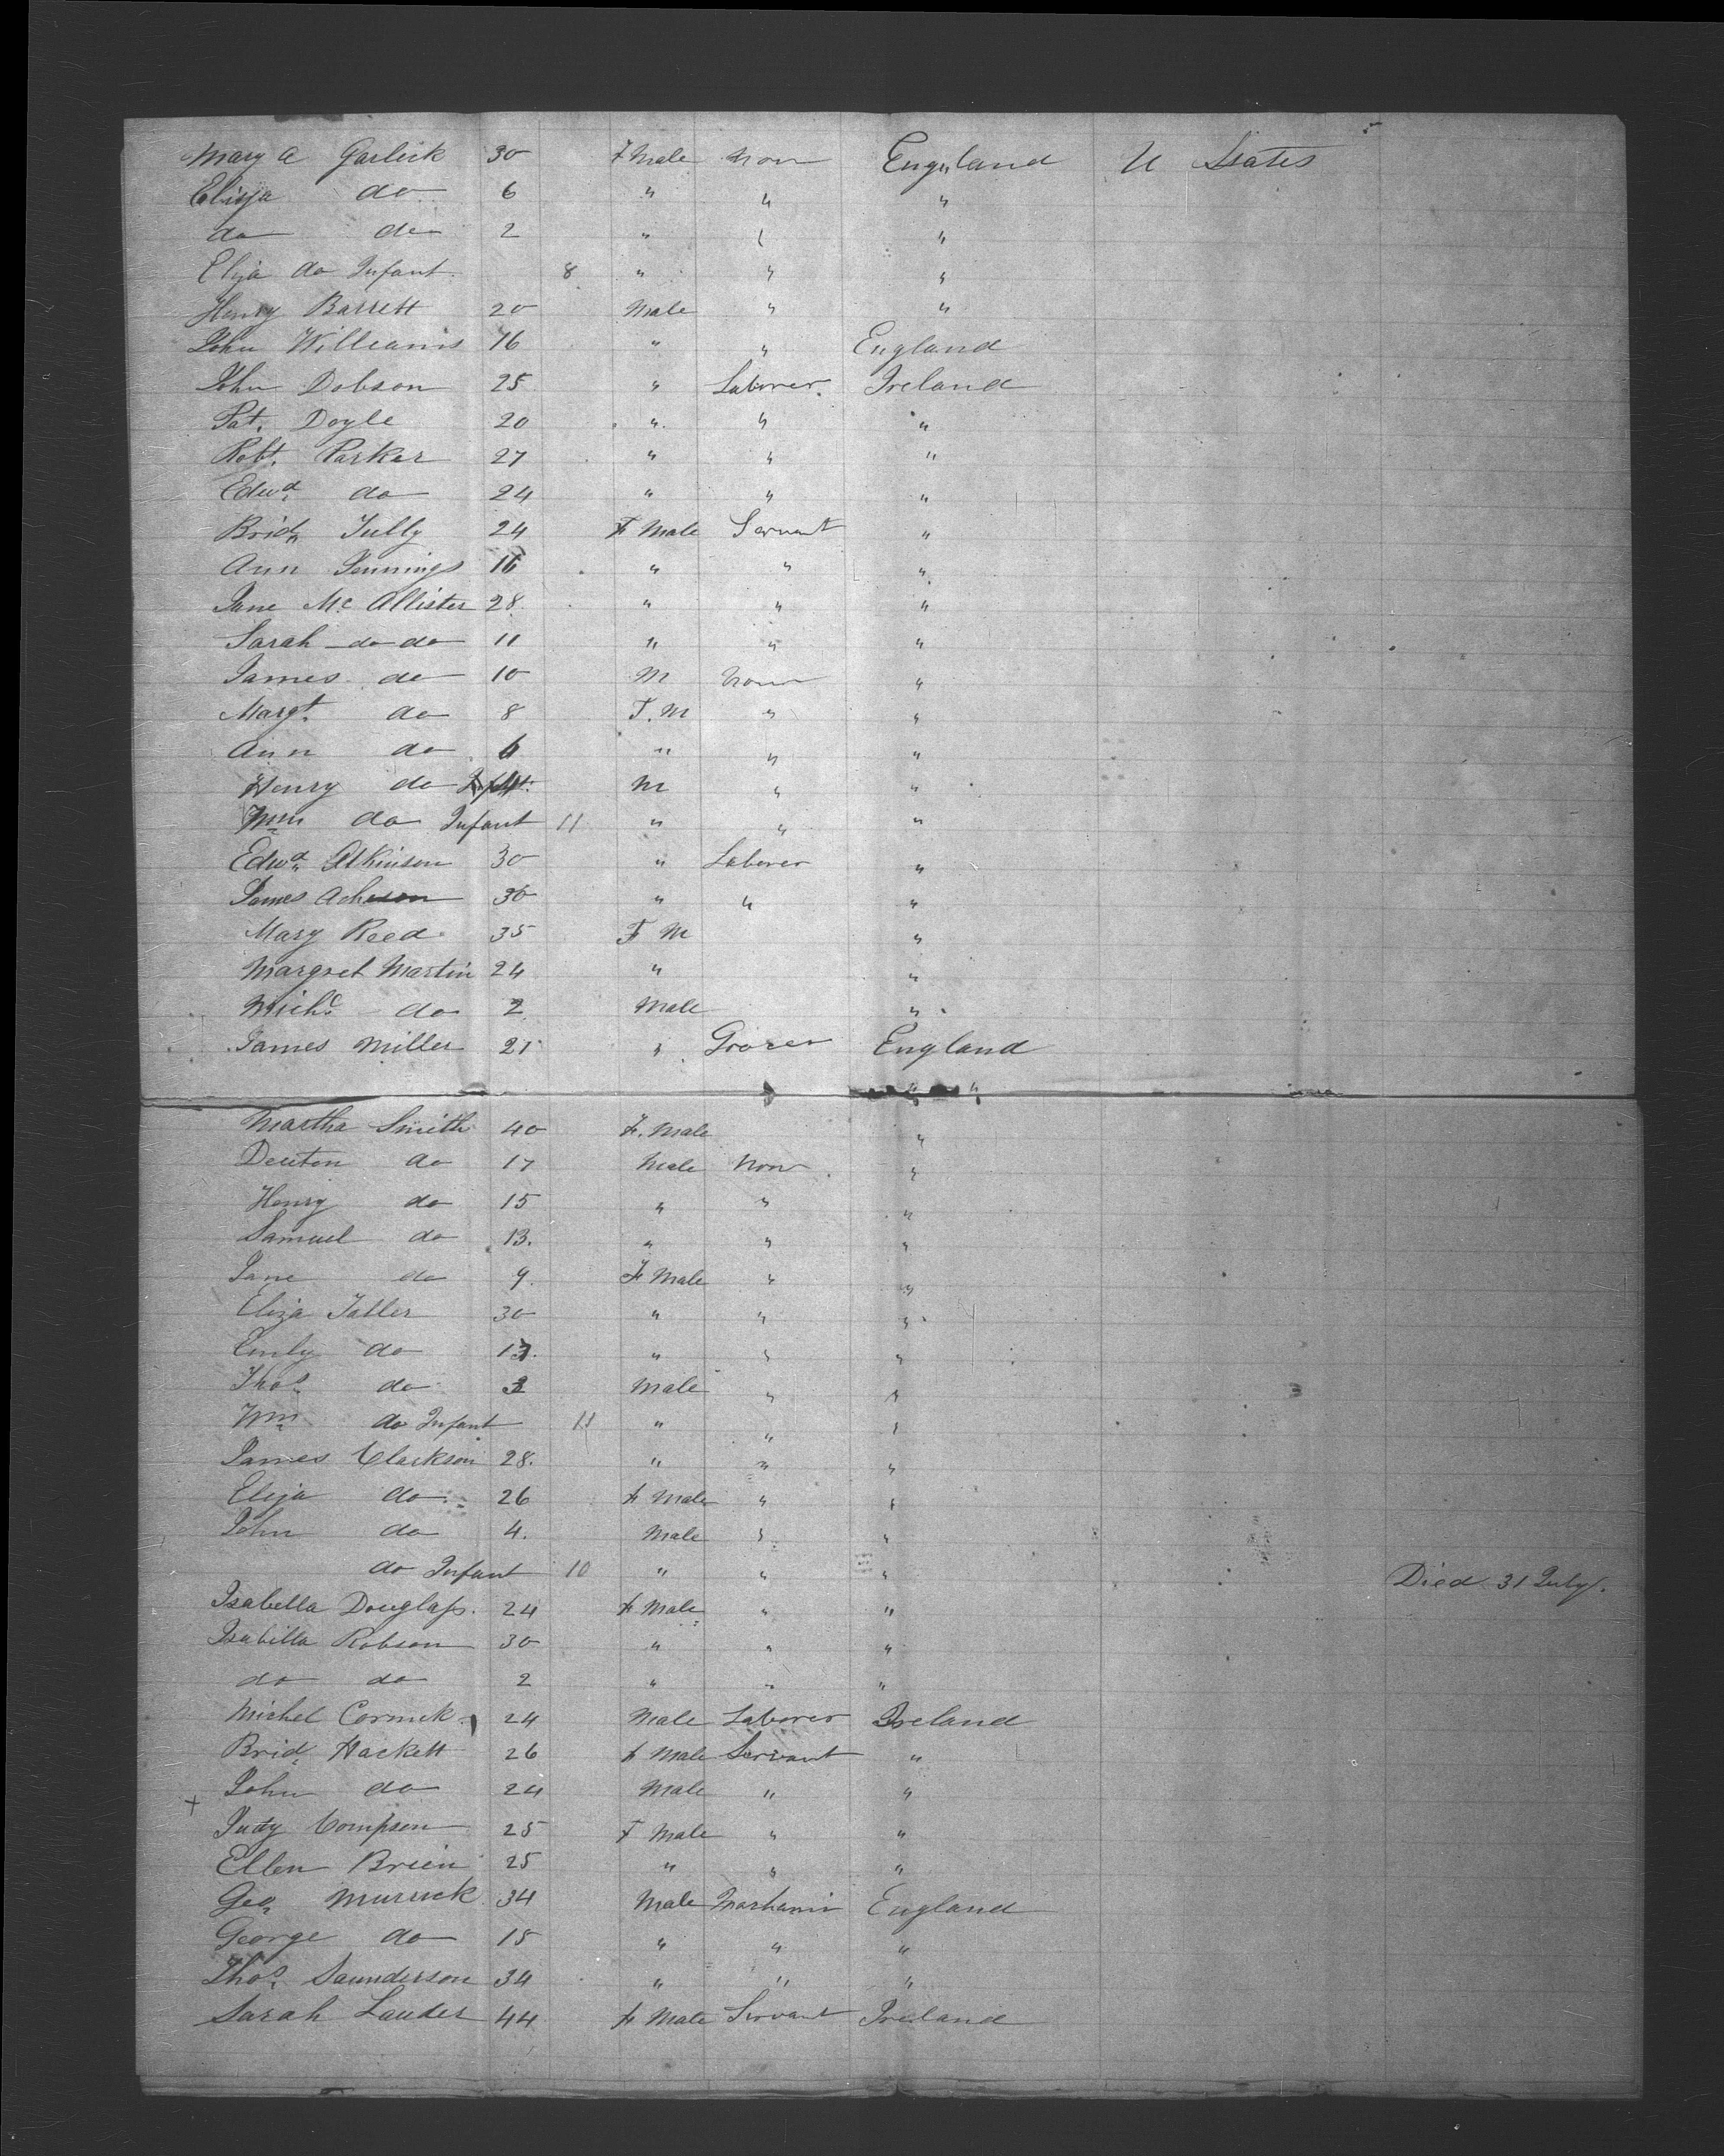 Mary A Garlick 30 F Male Non England U States
Eliza do 6 " " "
do do 2 " " "
Eliza do Infant 8 " " "
Henry Barrett 20 Male " "
John Williams 16 " " England
John Dobson 25 " Laborer Ireland
Pat. Doyle 20 " " "
Robt. Parker 27 " " "
Edwd do 24 " " "
Bridt Tully 24 F Male Servant "
Ann Jennings 16 " " "
Jane Mc Allister 28 " " "
Sarah do do 11 " " "
James do 10 M Non "
Margt. do 8 F. M " "
Ann do 6 " " "
Henry do 4 M " "
Wm do Infant 11 " " "
Edwd Atkinson 30 " Laborer "
James Acheson 30 " " "
Mary Reed 35 F M "
Margret Martin 24 " "
Michl do 2 Male "
James Miller 21 " Grocer England
" "
Martha Smith 40 F. Male "
Denton do 17 Male Non "
Henry do 15 " " "
Samuel do 13. " " "
Jane do 9. F Male " "
Eliza Taller 30 " " "
Emly do " " "
Thos do Male " "
Wm do Infant 11 " " "
James Clarkson 28. " " "
Eliza do 26 F Male " "
John do 4. Male " "
do Infant 10 " " " Died 31 July.
Isabella Douglass. 24 F Male " "
Isabilla Robson 30 " " "
do do 2 " " "
Michel Cormck 24 Male Laborer Ireland
Brid Hackett 26 F Male Servant "
+ John do 24 Male " "
Judy Compson 25 F Male " "
Ellen Brien 25 " " "
Geo Murrick 34 Male England
George do 15 " " "
Thos Saunderson 34 " " "
Sarah Lauder 44 F Male Servant Ireland